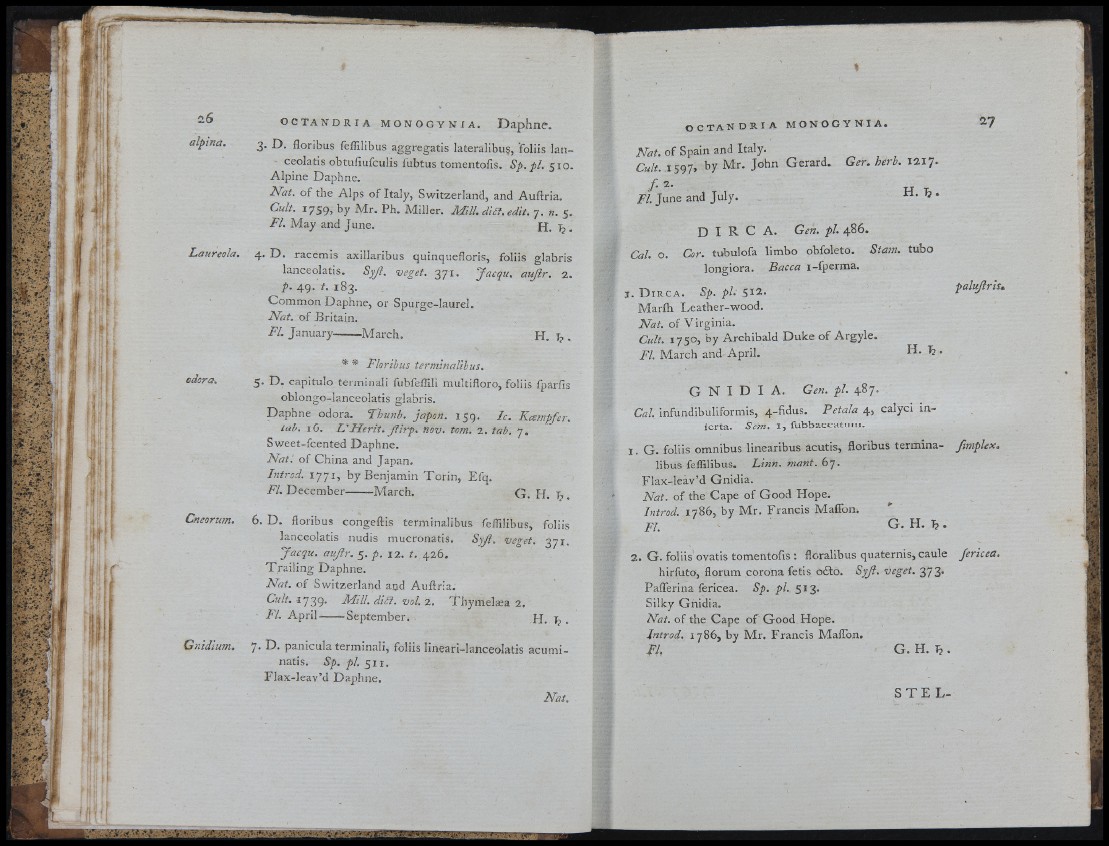 26 OCTANDRIA MONOGYNIA. Daphne.
alpina. 3. D. floribus ſeſſilibus aggregatis lateralibus, foliis lan-
ceolatis obtuſiuſculis ſubtus tomentoſis. Sp. pl. 510.
Alpine Daphne.
Nat. of the Alps of Italy, Switzerland, and Auſtria.
Cult. 1759, by Mr. Ph. Miller. Mill. dict. edit. 7. n. 5.
Fl. May and June. H. ♄.
Laureola. 4. D. racemis axillaribus quinquefloris, foliis glabris
lanceolatis. Syſt. veget. 371. Jacqu. auſtr. 2.
p. 49. t. 183.
Common Daphne, or Spurge-laurel.
Nat. of Britain.
Fl. January——March. H. ♄.
* * Floribus terminalibus.
odora. 5. D. capitulo terminali ſubſeſſili multifloro, foliis ſparſis
oblongo-lanceolatis glabris.
Daphne odora. Thunb. japon. 159. Ic. Kæmpfer.
tab. 16. L'Herit. ſtirp. nov. tom. 2. tab. 7.
Sweet-ſcented Daphne.
Nat. of China and Japan.
Introd. 1771, by Benjamin Torin, Eſq.
Fl. December——March. G. H. ♄.
Cneorum. 6. D. floribus congeſtis terminalibus ſeſſilibus, foliis
lanceolatis nudis mucronatis. Syſt. veget. 371.
Jacqu. auſtr. 5. p. 12. t. 426.
Trailing Daphne.
Nat. of Switzerland and Auſtria.
Cult. 1739. Mill. dict. vol. 2. Thymelæa 2.
Fl. April——September. H. ♄.
Gnidium. 7. D. panicula terminali, foliis lineari-lanceolatis acumi-
natis. Sp. pl. 511.
Flax-leav'd Daphne.
Nat.
OCTANDRIA MONOGYNIA. 27
Nat. of Spain and Italy.
Cult. 1597, by Mr. John Gerard. Ger. herb. 1217.
f. 2.
Fl. June and July. H. ♄.
DIRCA. Gen. pl. 486.
Cal. 0. Cor. tubuloſa limbo obſoleto. Stam. tubo
longiora. Bacca 1-ſperma.
1. DIRCA. Sp. pl. 512. paluſtris.
Marſh Leather-wood.
Nat. of Virginia.
Cult. 1750, by Archibald Duke of Argyle.
Fl. March and April. H. ♄.
GNIDIA. Gen. pl. 487.
Cal. infundibuliformis, 4-fidus. Petala 4, calyci in-
ſerta. Sem. 1, ſubbaccatum.
1. G. foliis omnibus linearibus acutis, floribus termina- ſimplex.
libus ſeſſilibus. Linn. mant. 67.
Flax-leav'd Gnidia.
Nat. of the Cape of Good Hope.
Introd. 1786, by Mr. Francis Maſſon.
Fl. G. H. ♄.
2. G. foliis ovatis tomentoſis: floralibus quaternis, caule ſericea.
hirſuto, florum corona ſetis octo. Syſt. veget. 373.
Paſſerina ſericea. Sp. pl. 513.
Silky Gnidia.
Nat. of the Cape of Good Hope.
Introd. 1786, by Mr. Francis Maſſon.
Fl. G. H. ♄.
STEL-